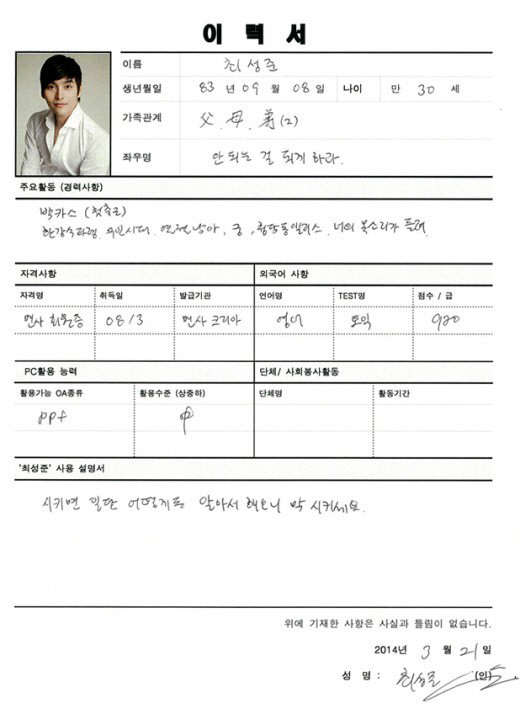 이 력 서
이름 최성준
생년월일 83 년 09 월 08 일 나이 만 30 세
가족관계 父, 母, 弟(2)
좌우명 안되는 걸 되게 하라.
주요활동 (경력사항)
박카스 (첫촬영)
한강수타령, 무인시대, 연개남아, 궁, 청담동앨리스, 너의 목소리가 들려.
자격사항 외국어 사항
자격명 취득일 발급기관 언어명 TEST명 점수 / 급
면사 회원증 08/3 면사 코리아 영어 토익 920
PC활용 능력 단체/ 사회봉사활동
활용가능 OA종류 활용수준 (상중하) 단체명 활동기간
ppt 中
'최성준' 사용 설명서
시키면 일단 어떻게든 알아서 해오니 막 시키세요.
위에 기재한 사항은 사실과 틀림이 없습니다.
2014년 3 월 21 일
성 명 : 최성준 (인)